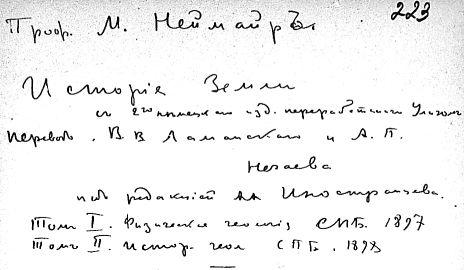 223
Проф. М. Неймайръ.
Исторія Земли
съ 2го нѣмецкаго изд. переработаннаго Улигомъ
переводъ . В. В. Ламанскаго и А. П.
Нечаева
подъ редакціей А. А. Иностранцева.
Томъ I. Физическая геологія, СПБ. 1897
Томъ II. Истор. геол СПБ. 1898